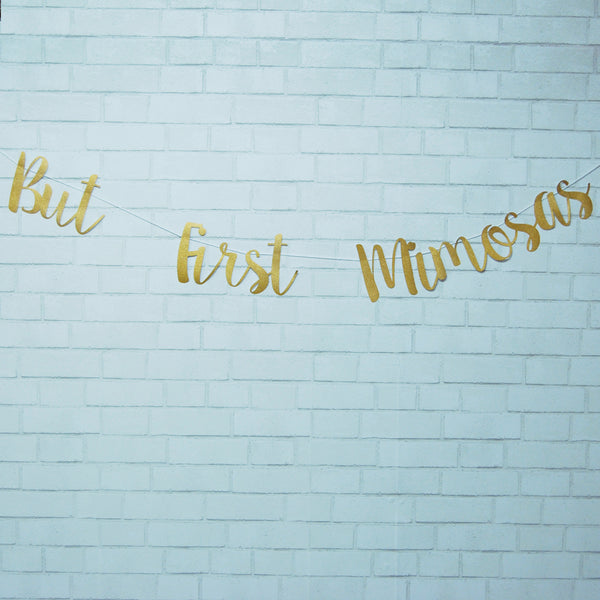 But First Mimosas